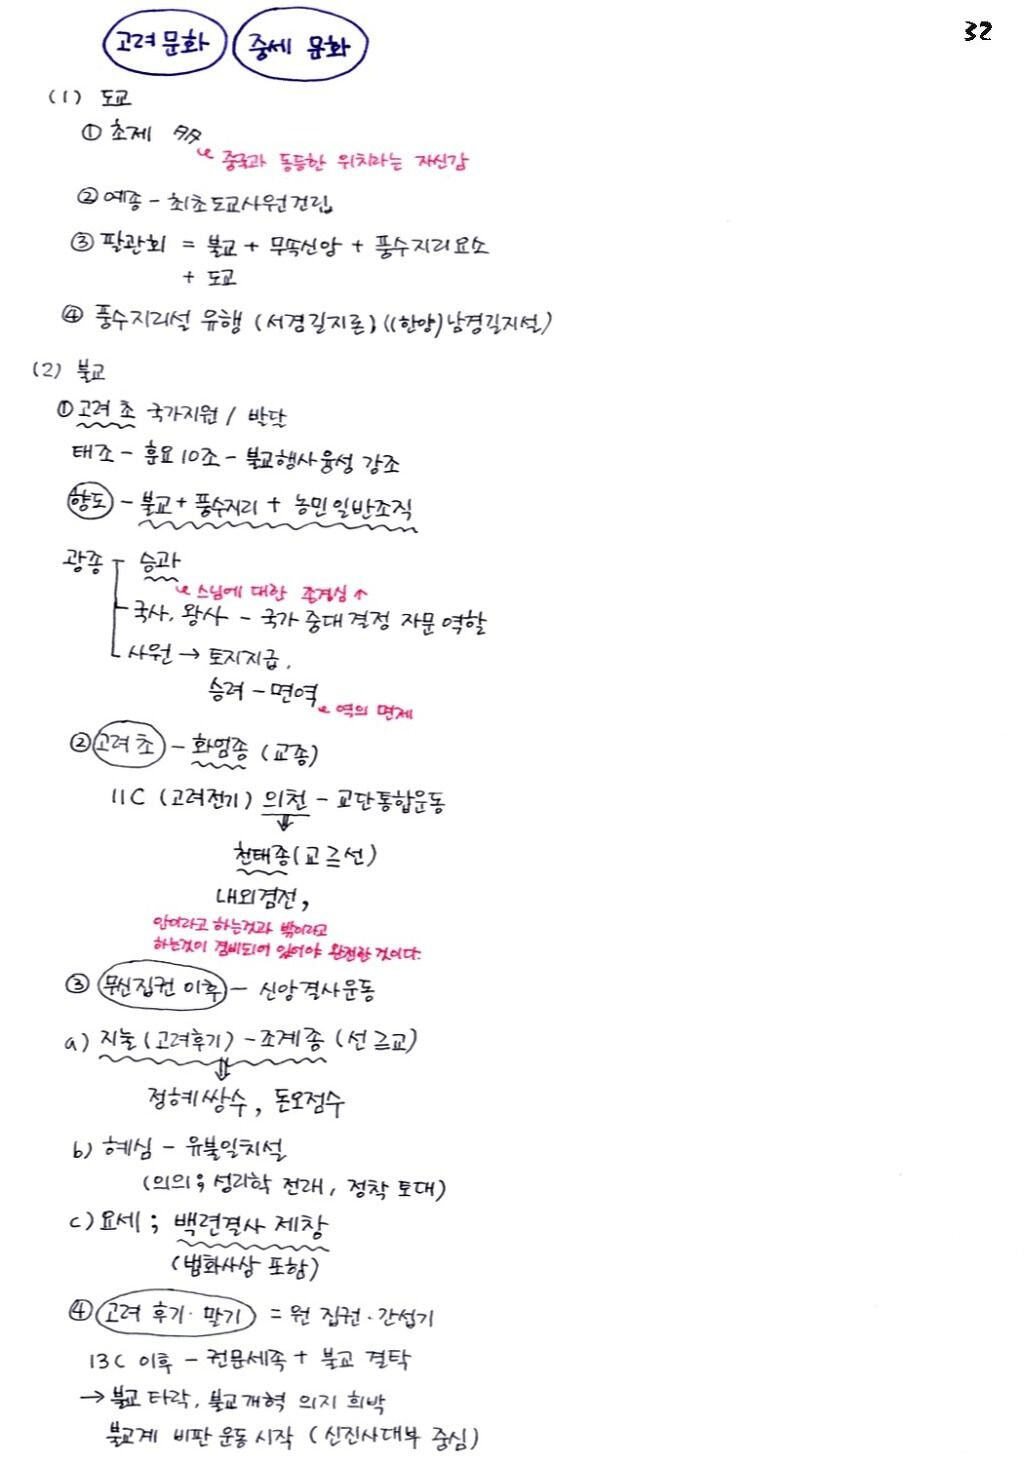 고려문화 중세 문화
32
(1) 도교
① 초제 多
중국과 동등한 위치라는 자신감
② 예종 - 최초도교사원건립
③ 팔관회 = 불교 + 무속신앙 + 풍수지리요소
+ 도교
④ 풍수지리설 유행 (서경길지론) ((한양)남경길지설)
(2) 불교
① 고려 초 국가지원 / 발달
태조 - 훈요10조 - 불교행사융성 강조
향도 - 불교 + 풍수지리 + 농민일반조직
광종 승과
스님에 대한 존경심 ↑
국사, 왕사 - 국가 중대결정 자문 역할
사원 → 토지지급.
승려 - 면역
역의 면제
② 고려 초 - 화엄종 (교종)
11C (고려전기) 의천 - 교단통합운동
천태종(교≥선)
내외겸전,
안이라고 하는것과 밖이라고
하는것이 겸비되어 있어야 완전한 것이다.
③ 무신집권 이후 - 신앙결사운동
a) 지눌(고려후기) - 조계종 (선≥교)
정혜쌍수, 돈오점수
b) 혜심 - 유불일치설
(의의; 성리학 전래, 정착 토대)
c) 요세; 백련결사 제창
(법화사상 포함)
④ 고려 후기·말기 = 원 집권·간섭기
13C 이후 - 권문세족 + 불교 결탁
→ 불교 타락, 불교개혁 의지 희박
불교계 비판 운동 시작 (신진사대부 중심)